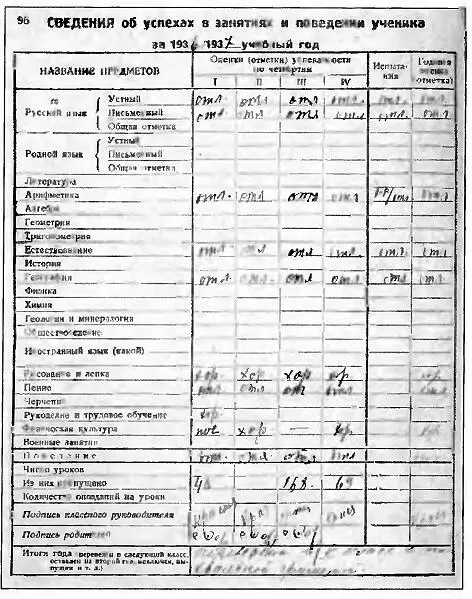 96 СВЕДЕНИЯ об успехах в занятиях и поведении ученика
за 1936/1937 учебный год
НАЗВАНИЕ ПРЕДМЕТОВ Оценки (отметки) успеваемости по четвертям Испытания Годовая оценка (отметка)
I II III IV
Русский язык
Устный отл. отл отл отл. отл. отл.
Письменный отл. отл отл отл. отл. отл
Общая отметка
Родной язык
Устный
Письменный
Общая отметка
Литература
Арифметика отл. отл отл отл
Алгебра
Геометрия
Тригонометрия
Естествование отл. отл отл отл. отл. отл.
История
География отл. отл. отл отл. отл отл.
Физика
Химия
Геология и минералогия
Обществоведение
Иностранный язык (какой)
Рисование и лепка хор. хор. хор хор.
Пение отл отл отл
Черчение
Рукоделие и трудовое обучение хор.
Физическая культура пос хор — хор
Военные занятия
Поведение отл. отл отл. отл
Число уроков
Из них пропущено
Количество опозданий на уроки
Подпись классного руководителя
Подпись родителей
Итоги года (переведен в следующий класс, оставлен на второй год, исключен, выпущен и т. д.)